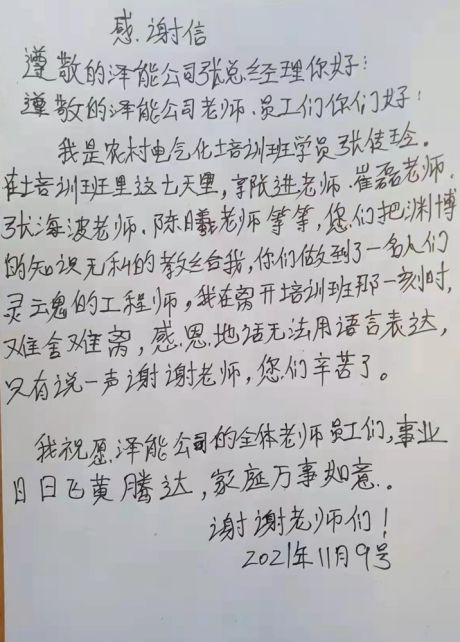 感谢信
遵敬的泽能公司张总经理你好:
遵敬的泽能公司老师.员工们你们好:
我是农村电气化培训班学员张佳玲。
在培训班里这七天里,享张进老师.崔磊老师.
张海波老师.陈曦老师等等,您们把渊博
的知识无私的教给我,你们做到了一名人们
灵魂的工程师,我在离开培训班那一刻时,
难舍难离,感恩地话无法用语言表达,
只有说一声谢谢老师,您们辛苦了。
我祝愿泽能公司的全体老师员工们,事业
日日飞黄腾达,家庭万事如意.。
谢谢老师们!
2021年11月9号